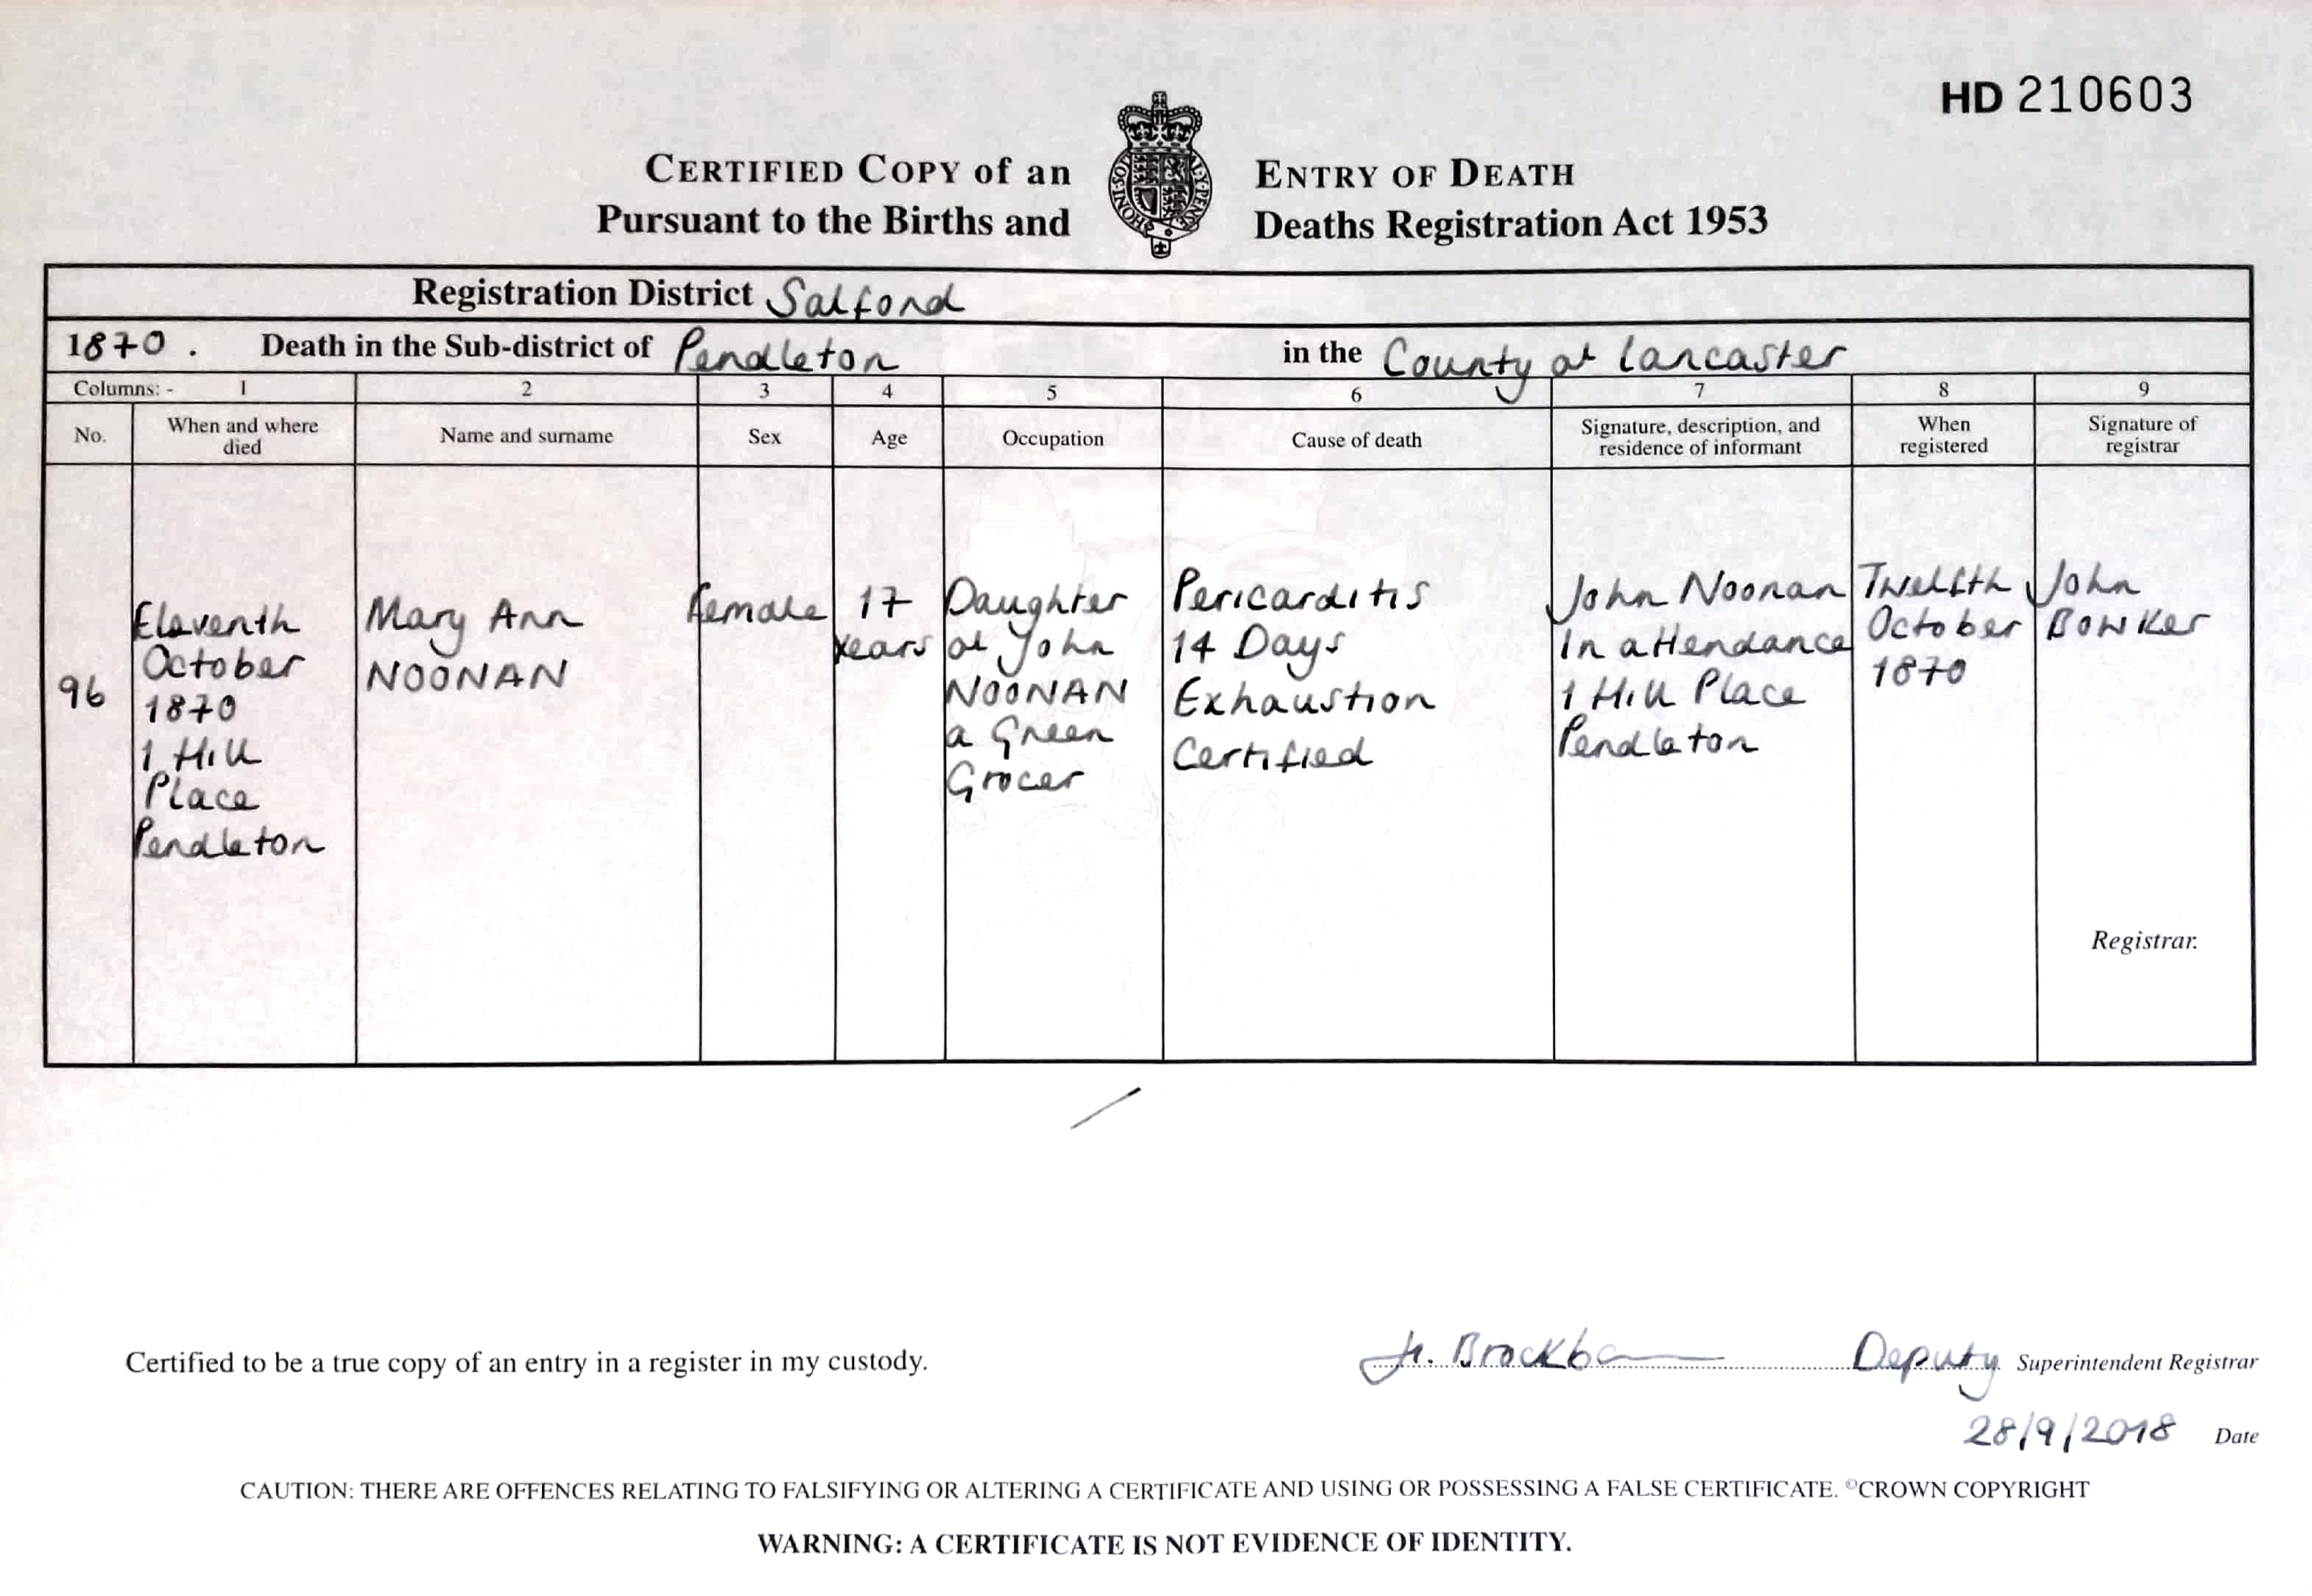 HD 210603
CERTIFIED COPY of an ENTRY OF DEATH
Pursuant to the Births and Deaths Registration Act 1953
Registration District Salford
1870. Death in the Sub-district of Pendleton in the County of Lancaster
Columns: - 1 2 3 4 5 6 7 8 9
No.
When and where
died
Name and surname
Sex
Age
Occupation
Cause of death
Signature, description, and
residence of informant
When
registered
Signature of
registrar
96
Eleventh
October
1870
1 Hill
Place
Pendleton
Mary Ann
NOONAN
Female
17
years
Daughter
of John
NOONAN
a Green
Grocer
Pericarditis
14 Days
Exhaustion
Certified
John Noonan
In attendance
1 Hill Place
Pendleton
Twelfth
October
1870
John
Bowker
Registrar.
Certified to be a true copy of an entry in a register in my custody.
Deputy Superintendent Registrar
28/9/2018 Date
CAUTION: THERE ARE OFFENCES RELATING TO FALSIFYING OR ALTERING A CERTIFICATE AND USING OR POSSESSING A FALSE CERTIFICATE. ©CROWN COPYRIGHT
WARNING: A CERTIFICATE IS NOT EVIDENCE OF IDENTITY.